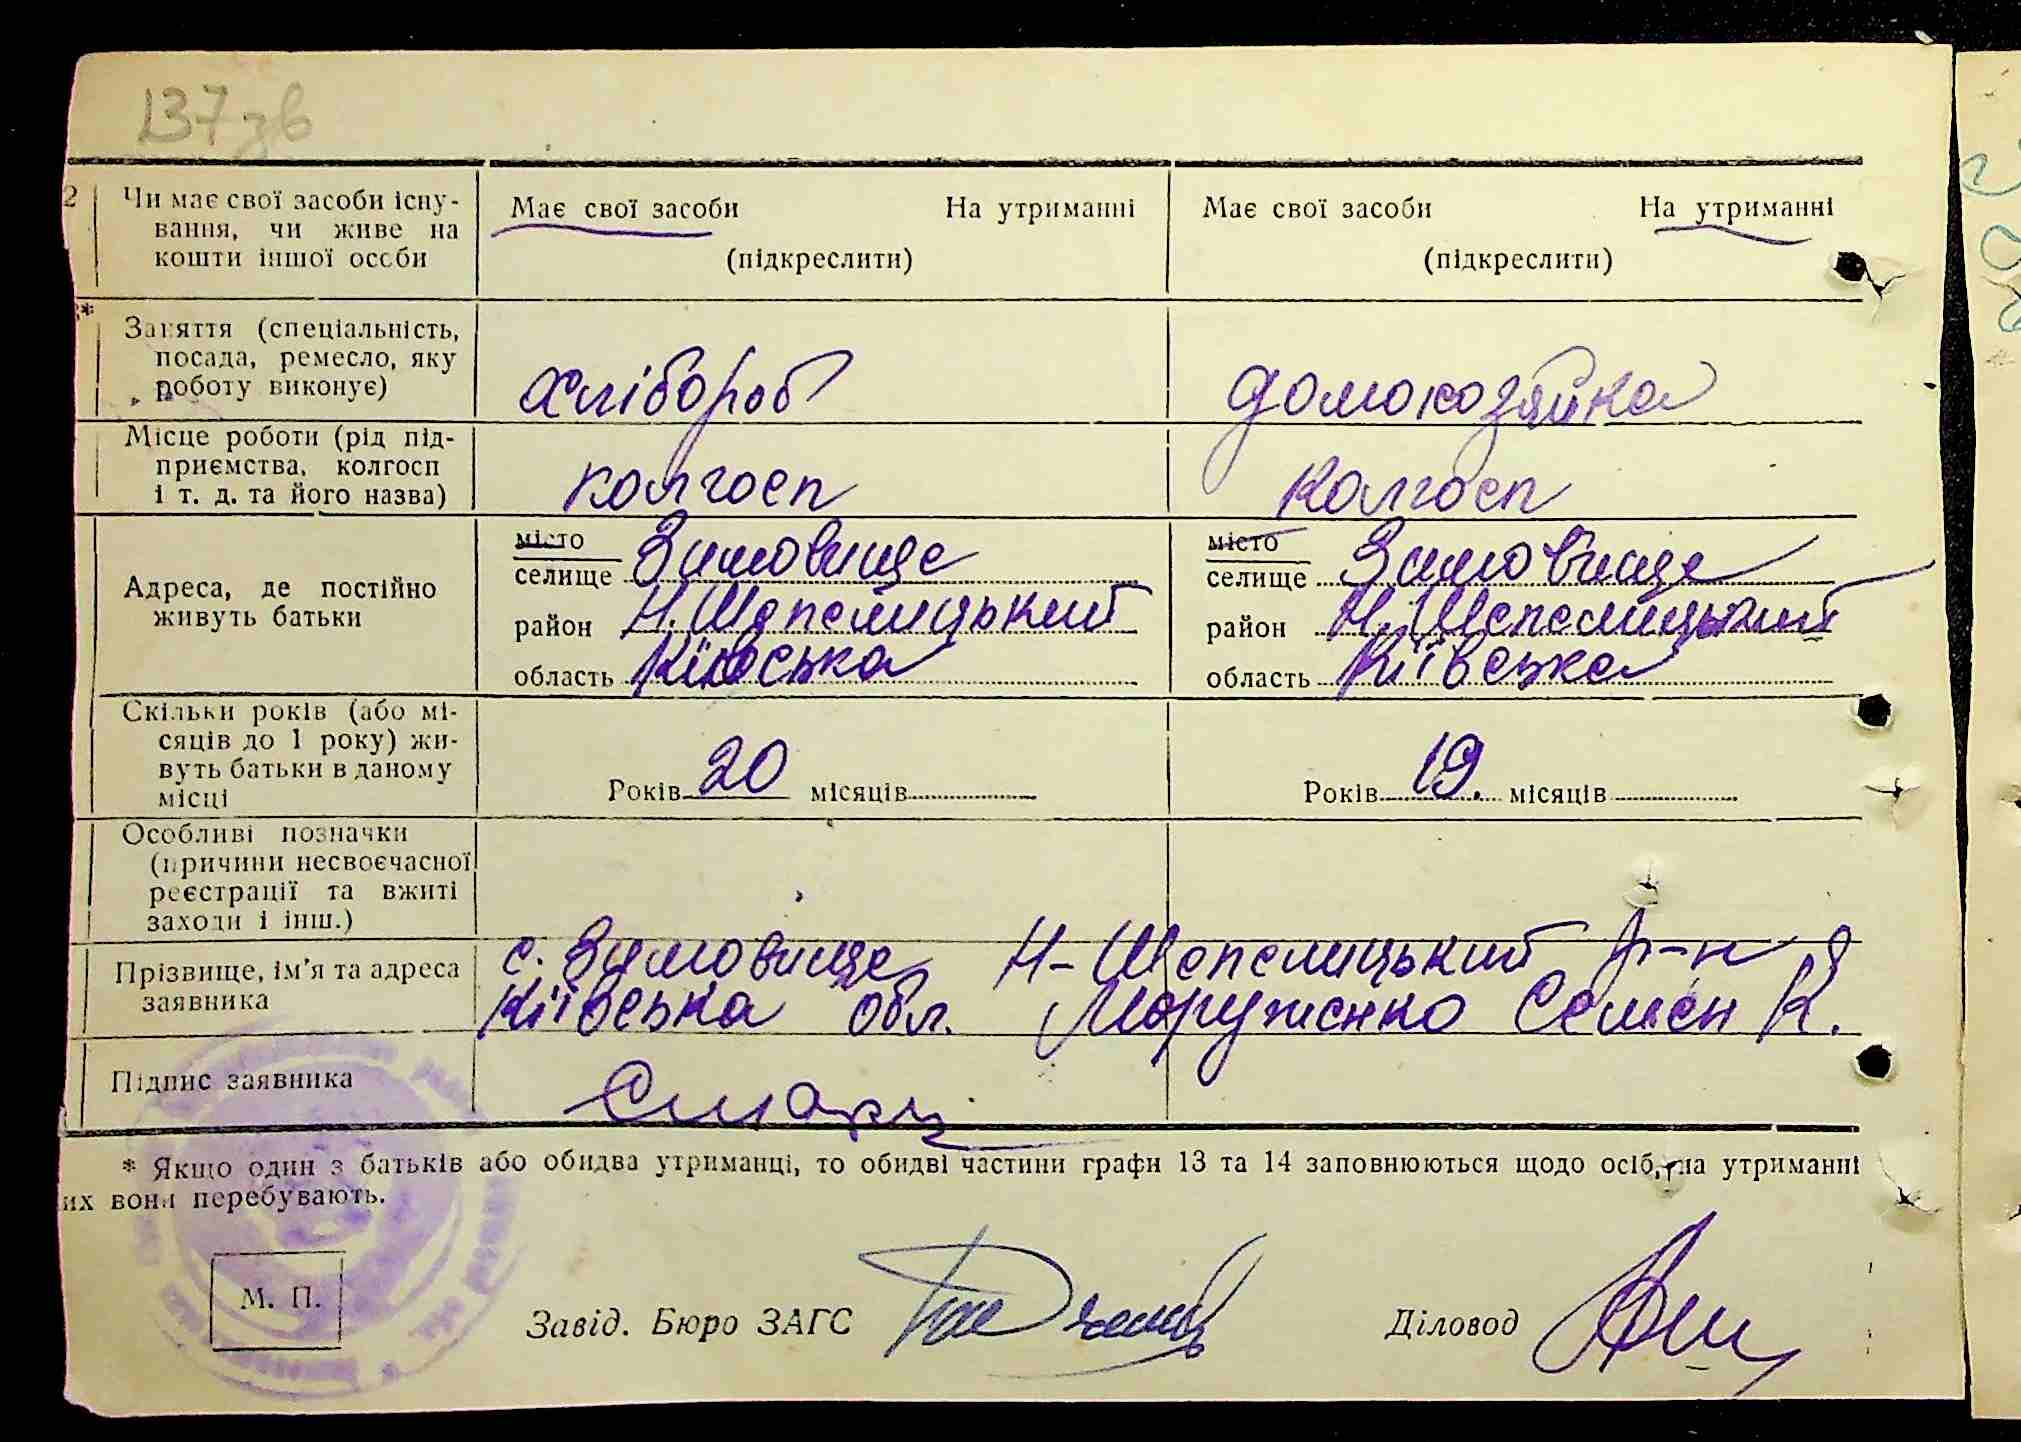 137зв
2 Чи має свої засоби існу- Має свої засоби На утриманні Має свої засоби На утриманні
вання, чи живе на
кошти іншої особи (підкреслити) (підкреслити)
Заняття (спеціальність,
посада, ремесло, яку
роботу виконує) хлібороб домохозяйка
Місце роботи (рід під-
приємства, колгосп
і т. д. та його назва) колгосп колгосп
місто місто
селище Зимовище селище Зимовище
Адреса, де постійно
живуть батьки
район Н. Шепелицький район Н. Шепелицький
область Київська область Київська
Скільки років (або мі-
сяців до 1 року) жи-
вуть батьки в даному
місці
Років 20 місяців Років 19. місяців
Особливі позначки
(причини несвоєчасної
реєстрації та вжиті
заходи і інш.)
Прізвище, ім'я та адреса
заявника
с. Зимовище Н-Шепелицький р-н
Київська обл. Моруженко Семен К.
Підпис заявника
* Якщо один з батьків або обидва утриманці, то обидві частини графи 13 та 14 заповнюються щодо осіб, на утриманні
их вони перебувають.
М. П.
Завід. Бюро ЗАГС Діловод